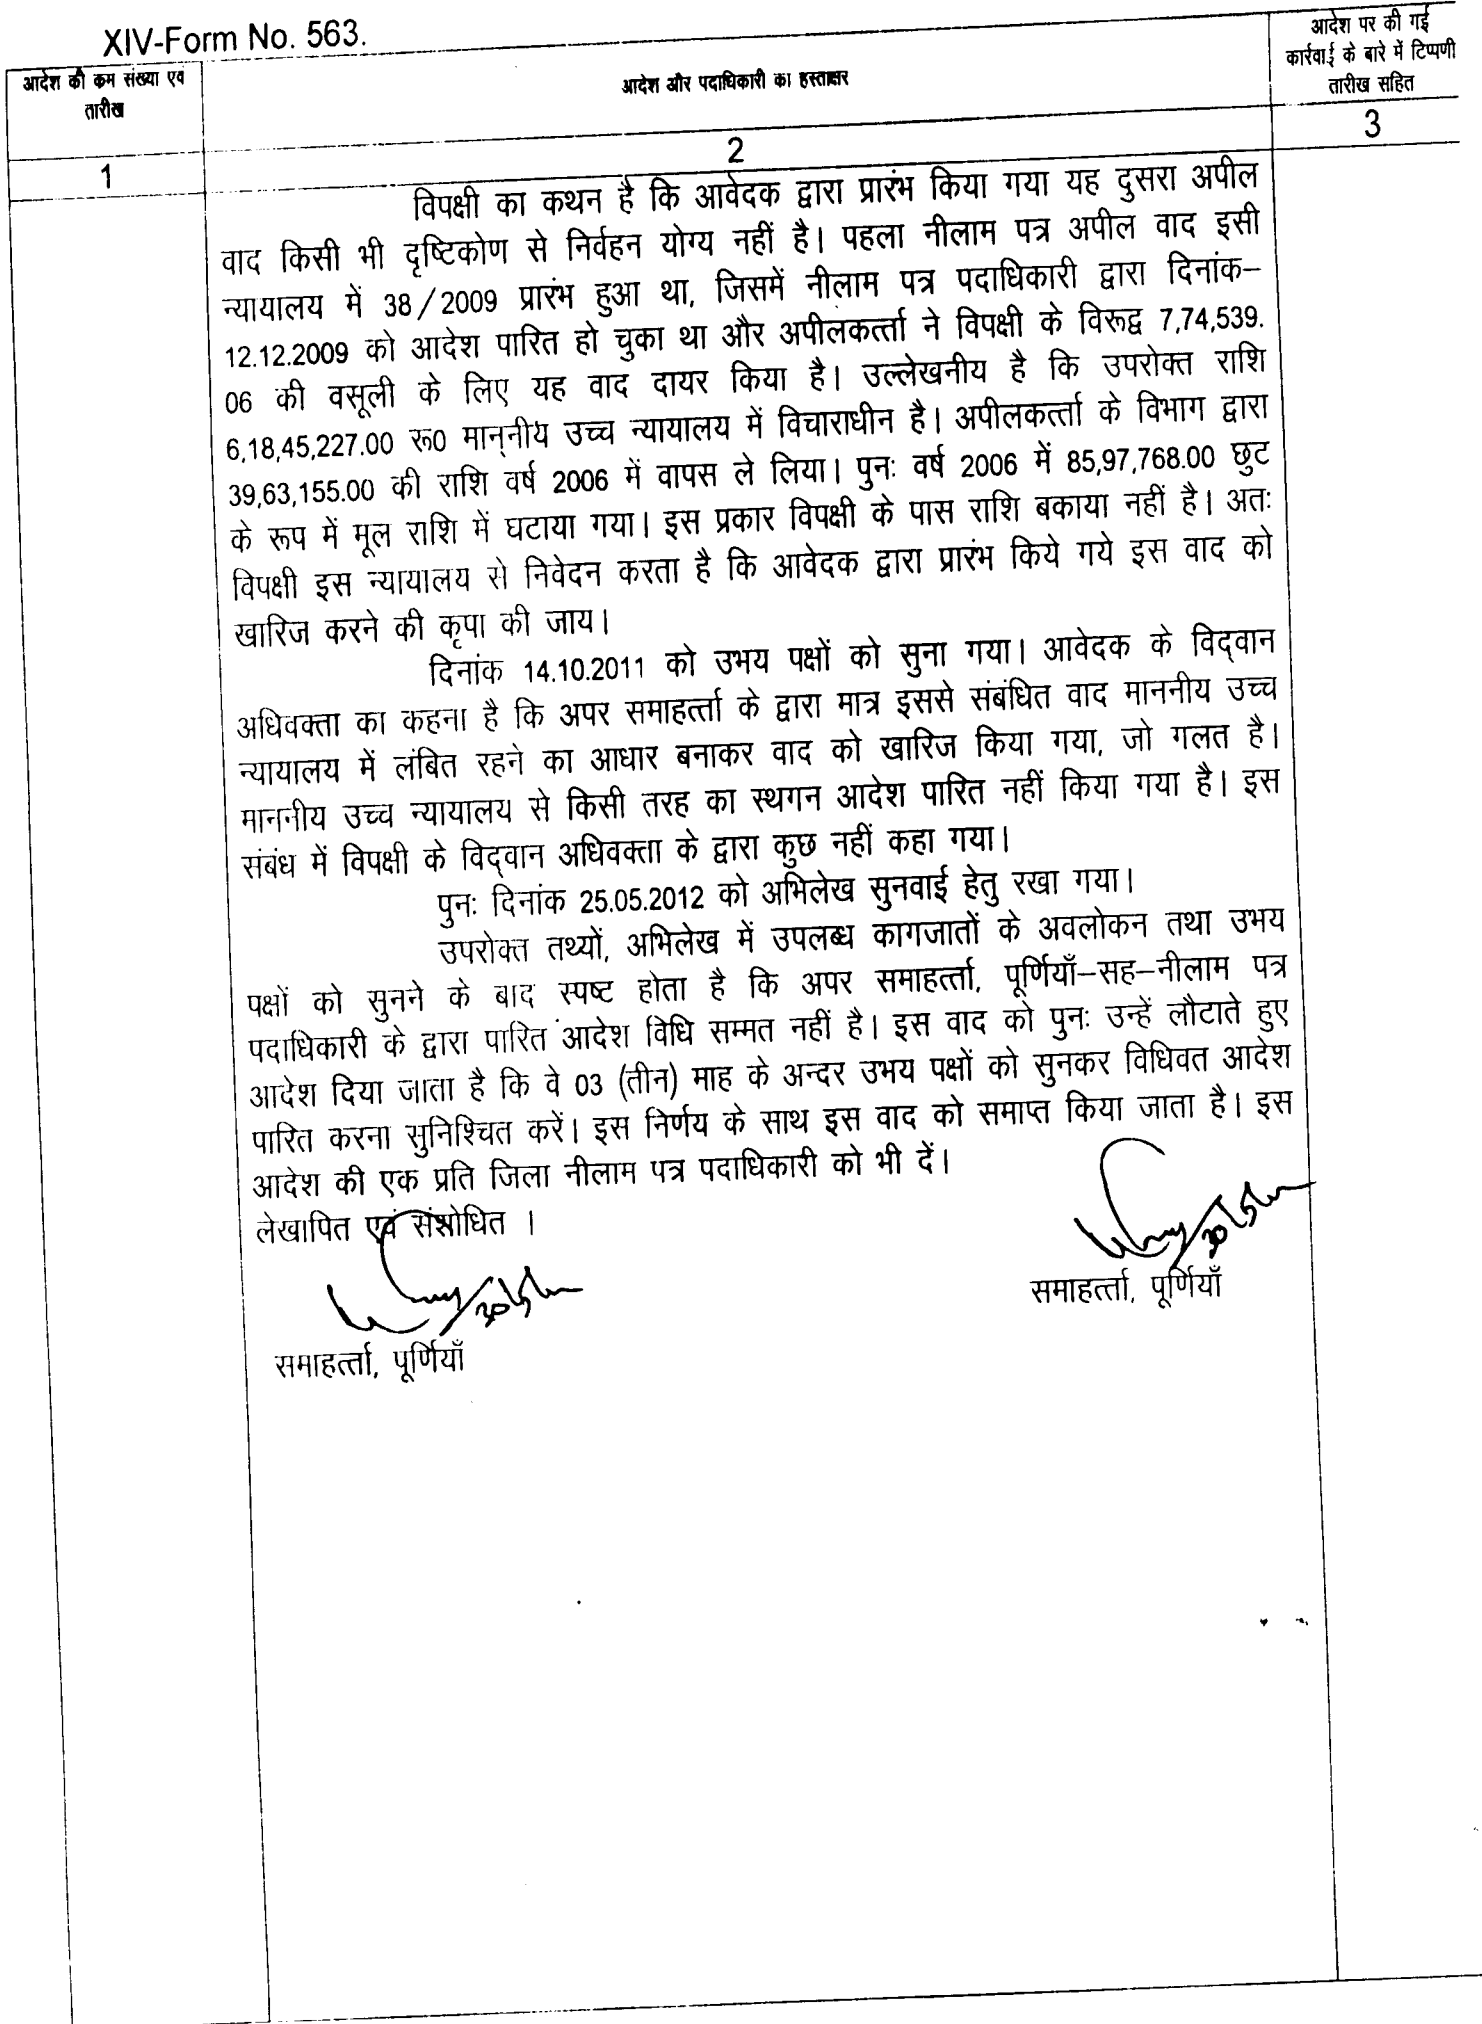 XIV-Form No. 563.
आदेश की कम संख्या एवं
तारीख
आदेश और पदाधिकारी का हस्ताक्षर
आदेश पर की गई
कार्रवाई के बारे में टिप्पणी
तारीख सहित
1
2
3
विपक्षी का कथन है कि आवेदक द्वारा प्रारंभ किया गया यह दुसरा अपील
वाद किसी भी दृष्टिकोण से निर्वहन योग्य नहीं है। पहला नीलाम पत्र अपील वाद इसी
न्यायालय में 38/2009 प्रारंभ हुआ था, जिसमें नीलाम पत्र पदाधिकारी द्वारा दिनांक–
12.12.2009 को आदेश पारित हो चुका था और अपीलकर्त्ता ने विपक्षी के विरूद्व 7,74,539.
06 की वसूली के लिए यह वाद दायर किया है। उल्लेखनीय है कि उपरोक्त राशि
6,18,45,227.00 रू0 माननीय उच्च न्यायालय में विचाराधीन है। अपीलकर्त्ता के विभाग द्वारा
39,63,155.00 की राशि वर्ष 2006 में वापस ले लिया। पुनः वर्ष 2006 में 85,97,768.00 छुट
के रूप में मूल राशि में घटाया गया। इस प्रकार विपक्षी के पास राशि बकाया नहीं है। अतः
विपक्षी इस न्यायालय से निवेदन करता है कि आवेदक द्वारा प्रारंभ किये गये इस वाद को
खारिज करने की कृपा की जाय।
दिनांक 14.10.2011 को उभय पक्षों को सुना गया। आवेदक के विद्वान
अधिवक्ता का कहना है कि अपर समाहर्त्ता के द्वारा मात्र इससे संबंधित वाद माननीय उच्च
न्यायालय में लंबित रहने का आधार बनाकर वाद को खारिज किया गया, जो गलत है।
माननीय उच्च न्यायालय से किसी तरह का स्थगन आदेश पारित नहीं किया गया है। इस
संबंध में विपक्षी के विद्वान अधिवक्ता के द्वारा कुछ नहीं कहा गया।
पुनः दिनांक 25.05.2012 को अभिलेख सुनवाई हेतु रखा गया।
उपरोक्त तथ्यों, अभिलेख में उपलब्ध कागजातों के अवलोकन तथा उभय
पक्षों को सुनने के बाद स्पष्ट होता है कि अपर समाहर्त्ता, पूर्णियाँ–सह–नीलाम पत्र
पदाधिकारी के द्वारा पारित आदेश विधि सम्मत नहीं है। इस वाद को पुनः उन्हें लौटाते हुए
आदेश दिया जाता है कि वे 03 (तीन) माह के अन्दर उभय पक्षों को सुनकर विधिवत आदेश
पारित करना सुनिश्चित करें। इस निर्णय के साथ इस वाद को समाप्त किया जाता है। इस
आदेश की एक प्रति जिला नीलाम पत्र पदाधिकारी को भी दें।
लेखापित एवं संशोधित ।
समाहर्त्ता, पूर्णियाँ
समाहर्त्ता, पूर्णियाँ